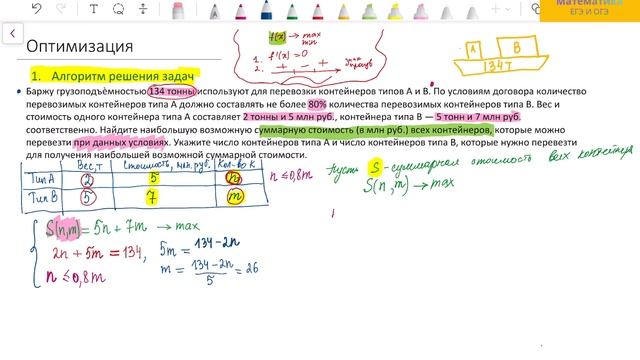 Математика
ЕГЭ И ОГЭ
Оптимизация
f(x) → max
min
1. f'(x)=0
2. + - +
A
B
134Т
1. Алгоритм решения задач
Баржу грузоподъёмностью 134 тонны используют для перевозки контейнеров типов А и В. По условиям договора количество
перевозимых контейнеров типа А должно составлять не более 80% количества перевозимых контейнеров типа В. Вес и
стоимость одного контейнера типа А составляет 2 тонны и 5 млн руб., контейнера типа В — 5 тонн и 7 млн руб.
соответственно. Найдите наибольшую возможную суммарную стоимость (в млн руб.) всех контейнеров, которые можно
перевезти при данных условиях. Укажите число контейнеров типа А и число контейнеров типа В, которые нужно перевезти
для получения наибольшей возможной суммарной стоимости.
Вес, т Стоимость, млн. руб. Кол-во к
Тип А 2 5 n
n ≤ 0,8m
Тип В 5 7 m
Пусть S - суммарная стоимость всех контейнеров
S(n,m) → max
S(n,m) = 5n + 7m → max
2n + 5m = 134, 5m = 134-2n
n ≤ 0,8m
m = 134-2n / 5 = 26